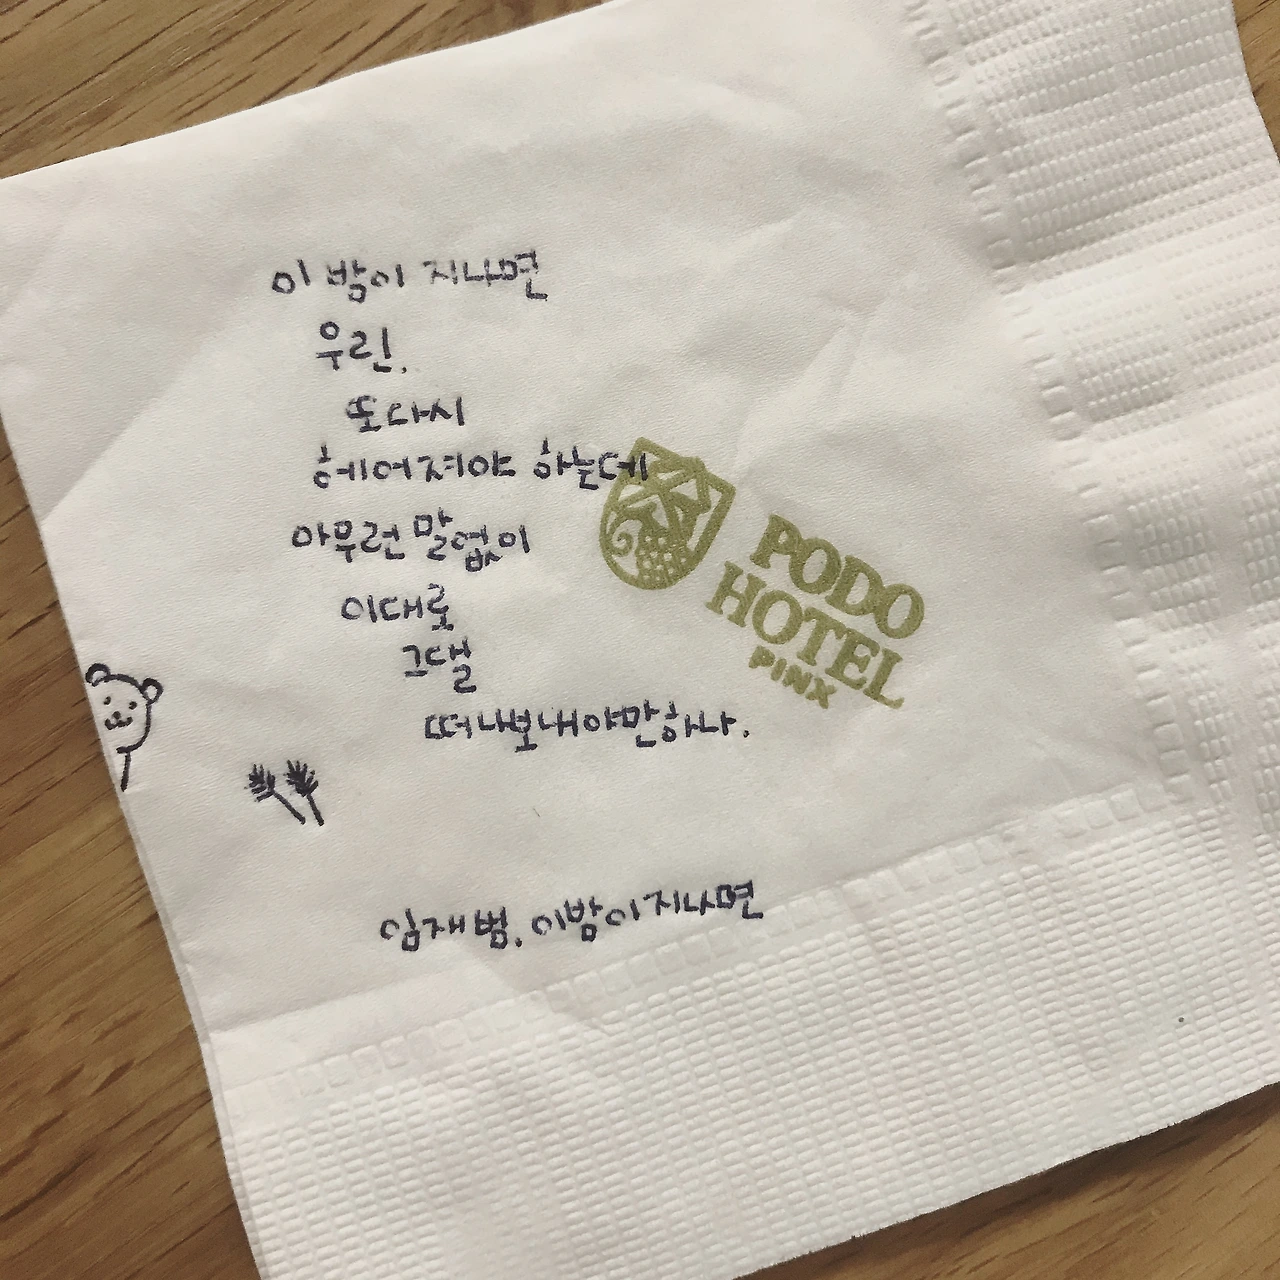 이 밤이 지나면
우린.
또다시
헤어져야 하는데
아무런 말없이
이대로
그댈
떠나보내야만하나.
PODO
HOTEL
PINX
임재범. 이밤이지나면